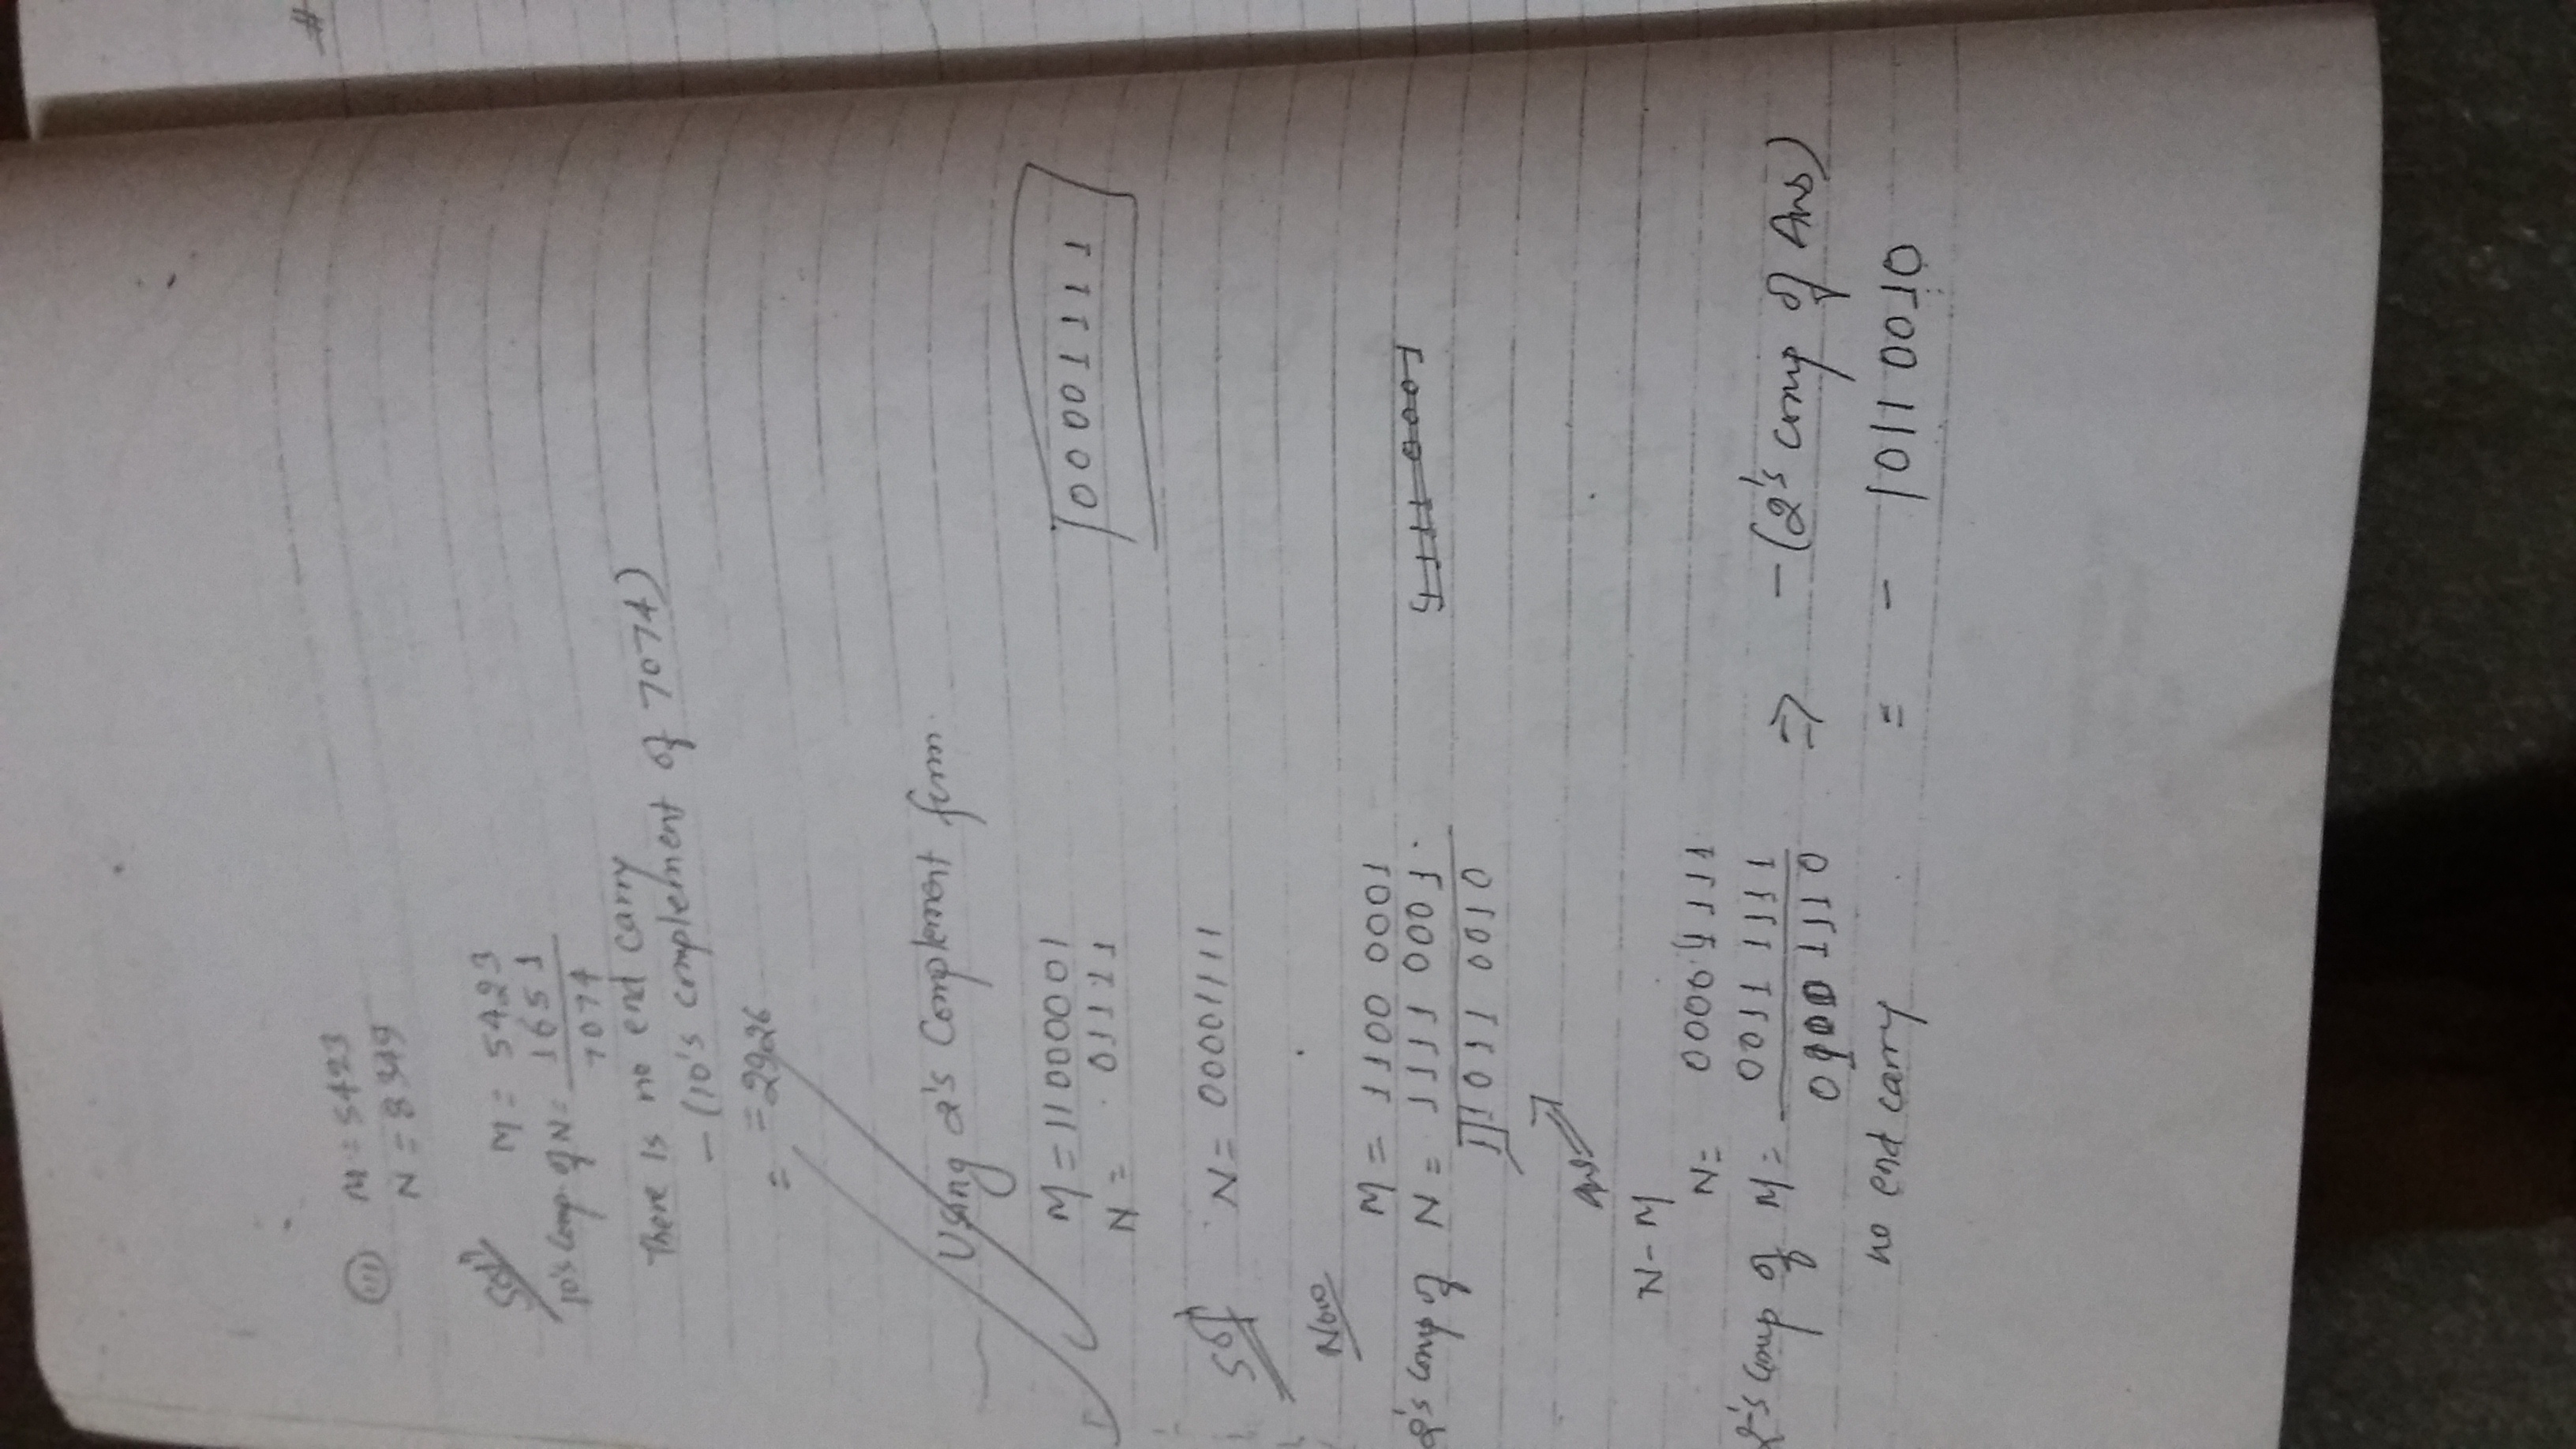 (iii) M = 5423
N = 8349
Sol^n M = 5423
10's comp. of N = 1651
7074
There is no end carry
- (10's complement of 7074)
= = 2926
Using 2's Complement form.
M = 11000001
N = 01111
00001111
Sol N = 00001111
Now
M = 1100 0001
2's comp of N = 1111 0001.
1 1011 0010
Ans
N - M
N = 0000 1111
2's comp of M = 0011 1111
0100 1110 ⇒ - (2's comp of Ans)
no end carry = - 1011 0010
#